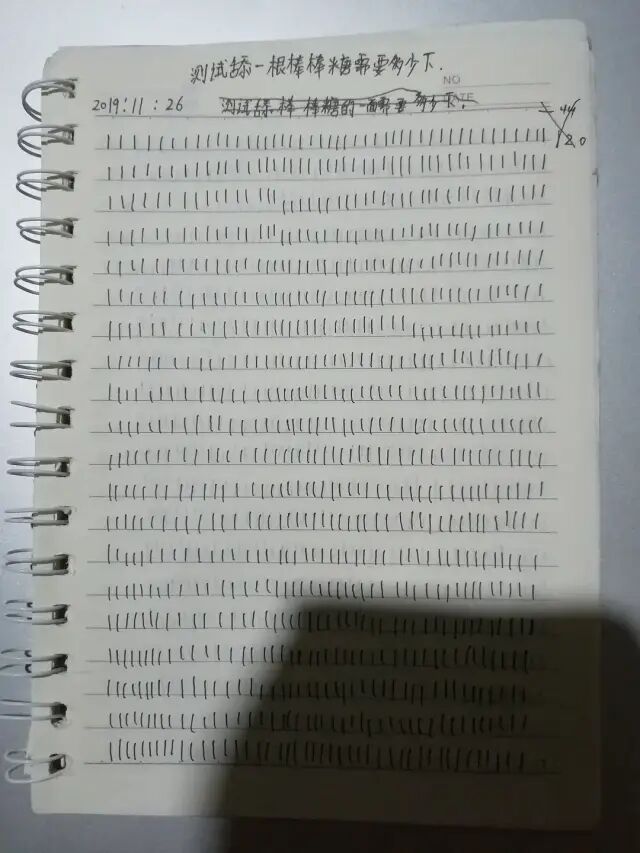 测试舔一根棒棒糖需要多少下.
NO
2019:11:26 测试舔棒棒糖的一面需要多少下. 44
120